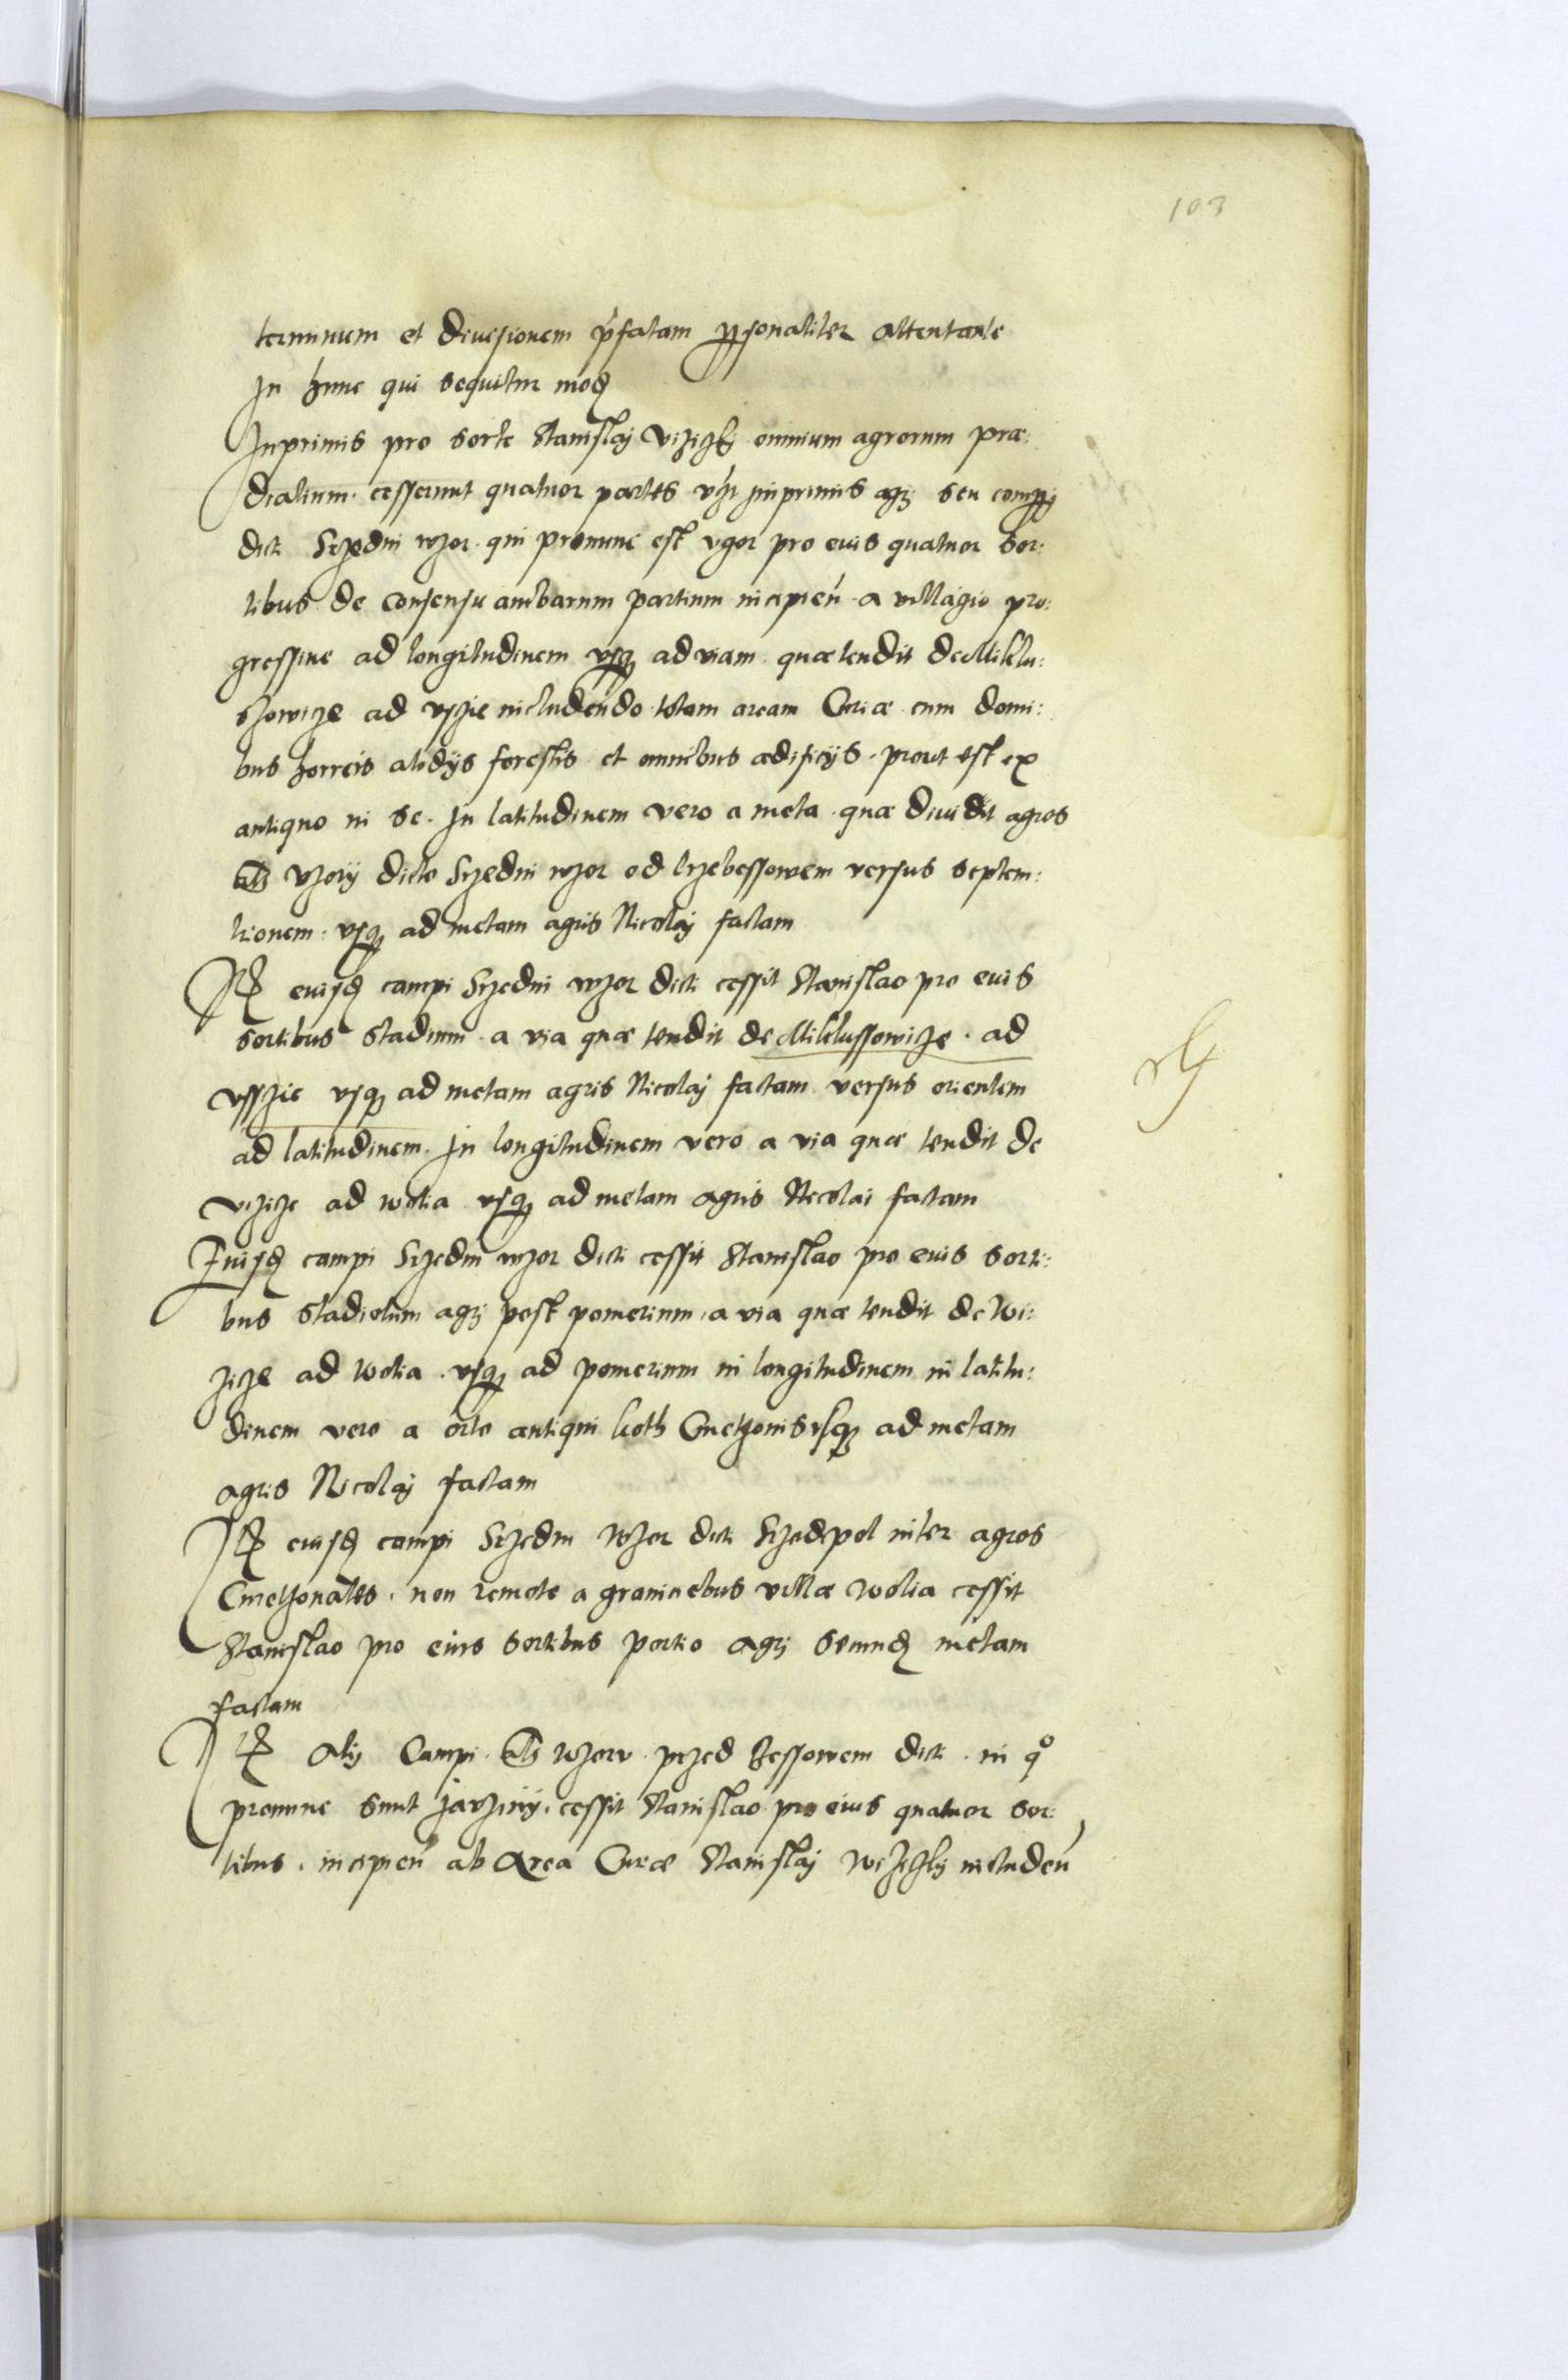 103
terminum et divisionem p̃fatam ꝑsonaliter attentante
In hunc qui sequitur modũ
Inprimis pro sorte Stanislaj vizizkj omnium agrorum præ:
dialium. cesserunt quatuor partes vz inprimis agrj seu campj
dicti Srzedni wzor. qui pronunc est vgor pro euis quatuor sor:
tibus de consensu ambarum partium incipien̄ a villagio pro:
gressiue ad longitudinem vsq; ad viam quæ tendit de Miklu:
szowicze ad vszie includendo totam aream Curiæ cum domi:
bus horreis alodijs forestis et omnibus ædificijs. prout est ex
antiquo in se. In latitudinem vero a meta quæ diuidit agros
als vzory dicto Srzedni wzor od brzebessowem versus septem:
trionem: vsq; ad metam agris Nicolaj factam
Itẽ euisdẽ campi Srzedni wzor dicti cessit Stanislao pro euis
sortibus stadium a via quæ tendit de Miklussowicze. ad
vsszie vsq; ad metam agris Nicolaj factam versus orientem
ad latitudinem. In longitudinem vero a via quæ tendit de
vizicze ad wolia vsq; ad metam agris Nicolai factam
Euisdẽ campi Srzedni wzor dicti cessit Stanislao pro euis sorti:
bus stadiolum agrj post pomerium, a via quæ tendit de Wi:
zicze ad Wolia. vsq; ad pomerium in longitudinem in latitu:
dinem vero a orto antiqui koth Cmethonis vsq; ad metam
agris Nicolaj factam
Itẽ euisdẽ campi Srzedni Wzor dicti Srzodpol inter agros
Cmethonales. non remote a graniciebus villæ Wolia cessit
Stanislao pro eius sortibus portio agrj secundũ metam
factam
Itẽ Alij Campi. als Wzorv przed Bessowem dicti. in qͦ
pronunc sunt jarziny. cessit Stanislao pro eius quatuor sor:
tibus. incipien̄ ab Area Curiæ Stanislaj Wizizkj includen̄